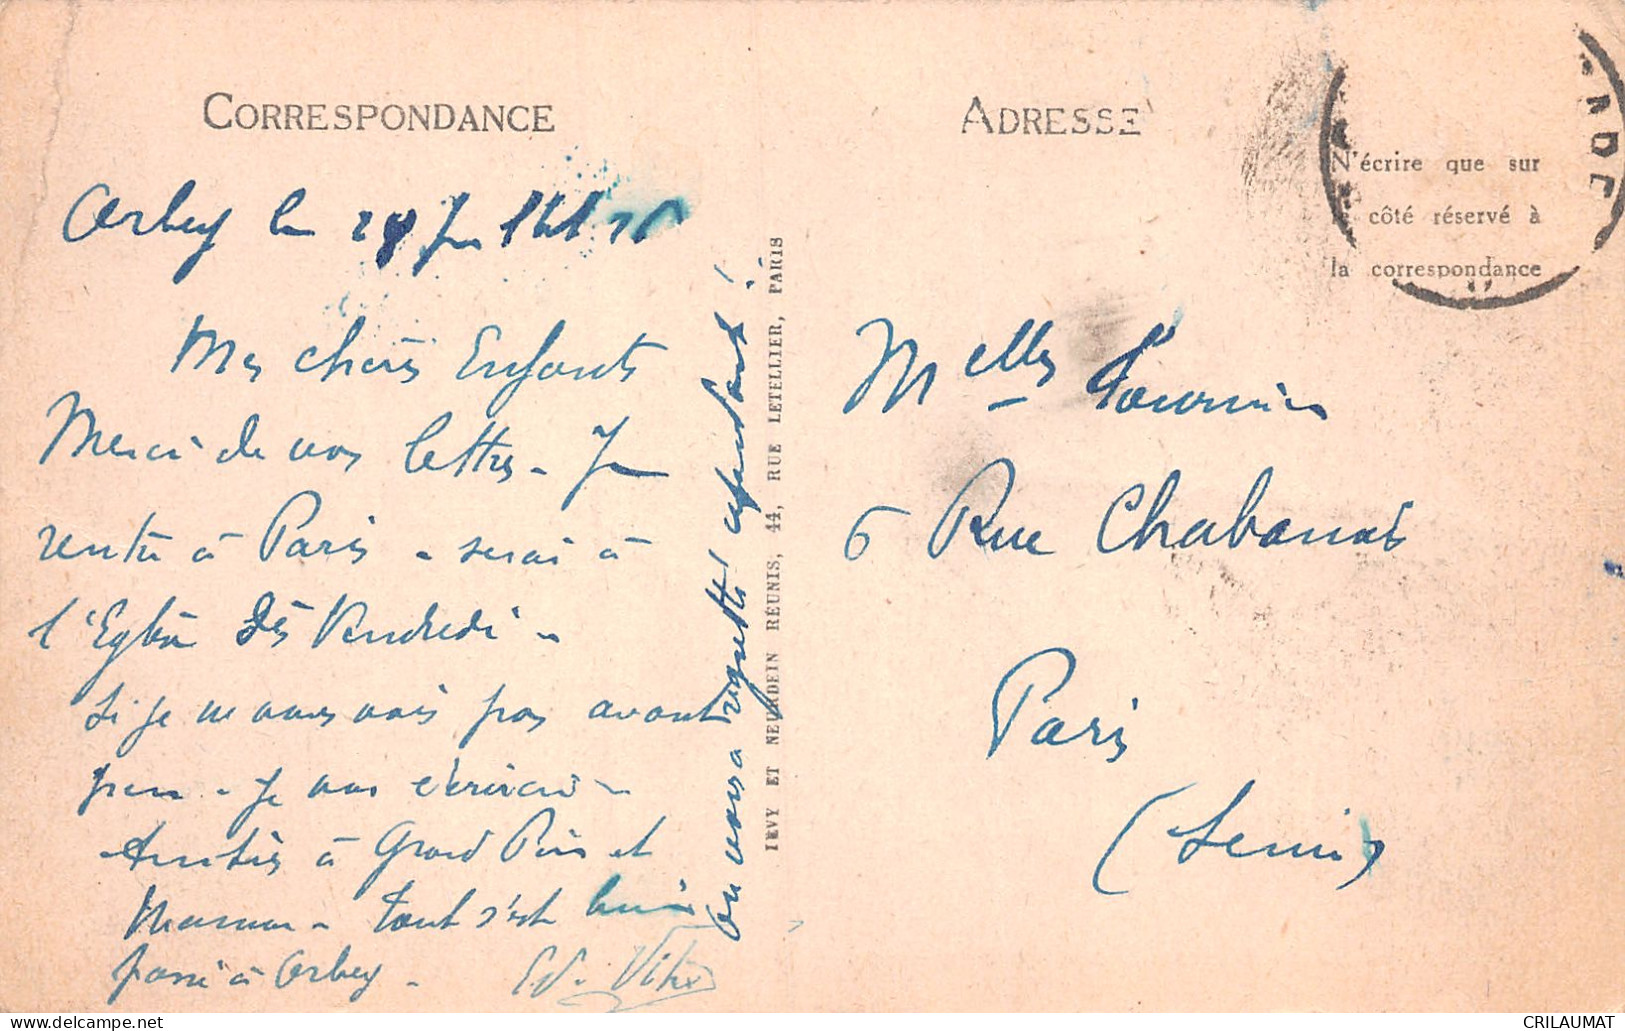 CORRESPONDANCE
Orbey le 28 Juillet
Mes chers Enfants
Merci de vos lettres - Je
rentre à Paris - serai à
l'Eglise Dès Vendredi -
Si je ne vous vois pas avant
je vous écrirai -
Amitiés à Grand Père et
Maman - tout s'est bien
passé à Orbey -
on vous a regretté cependant !
LEVY ET NEURDEIN RÉUNIS, 44, RUE LETELLIER, PARIS
ADRESSE
N'écrire que sur
le côté réservé à
la correspondance
Melles Fournier
6 Rue Chabanais
Paris
(Seine)
CRILAUMAT